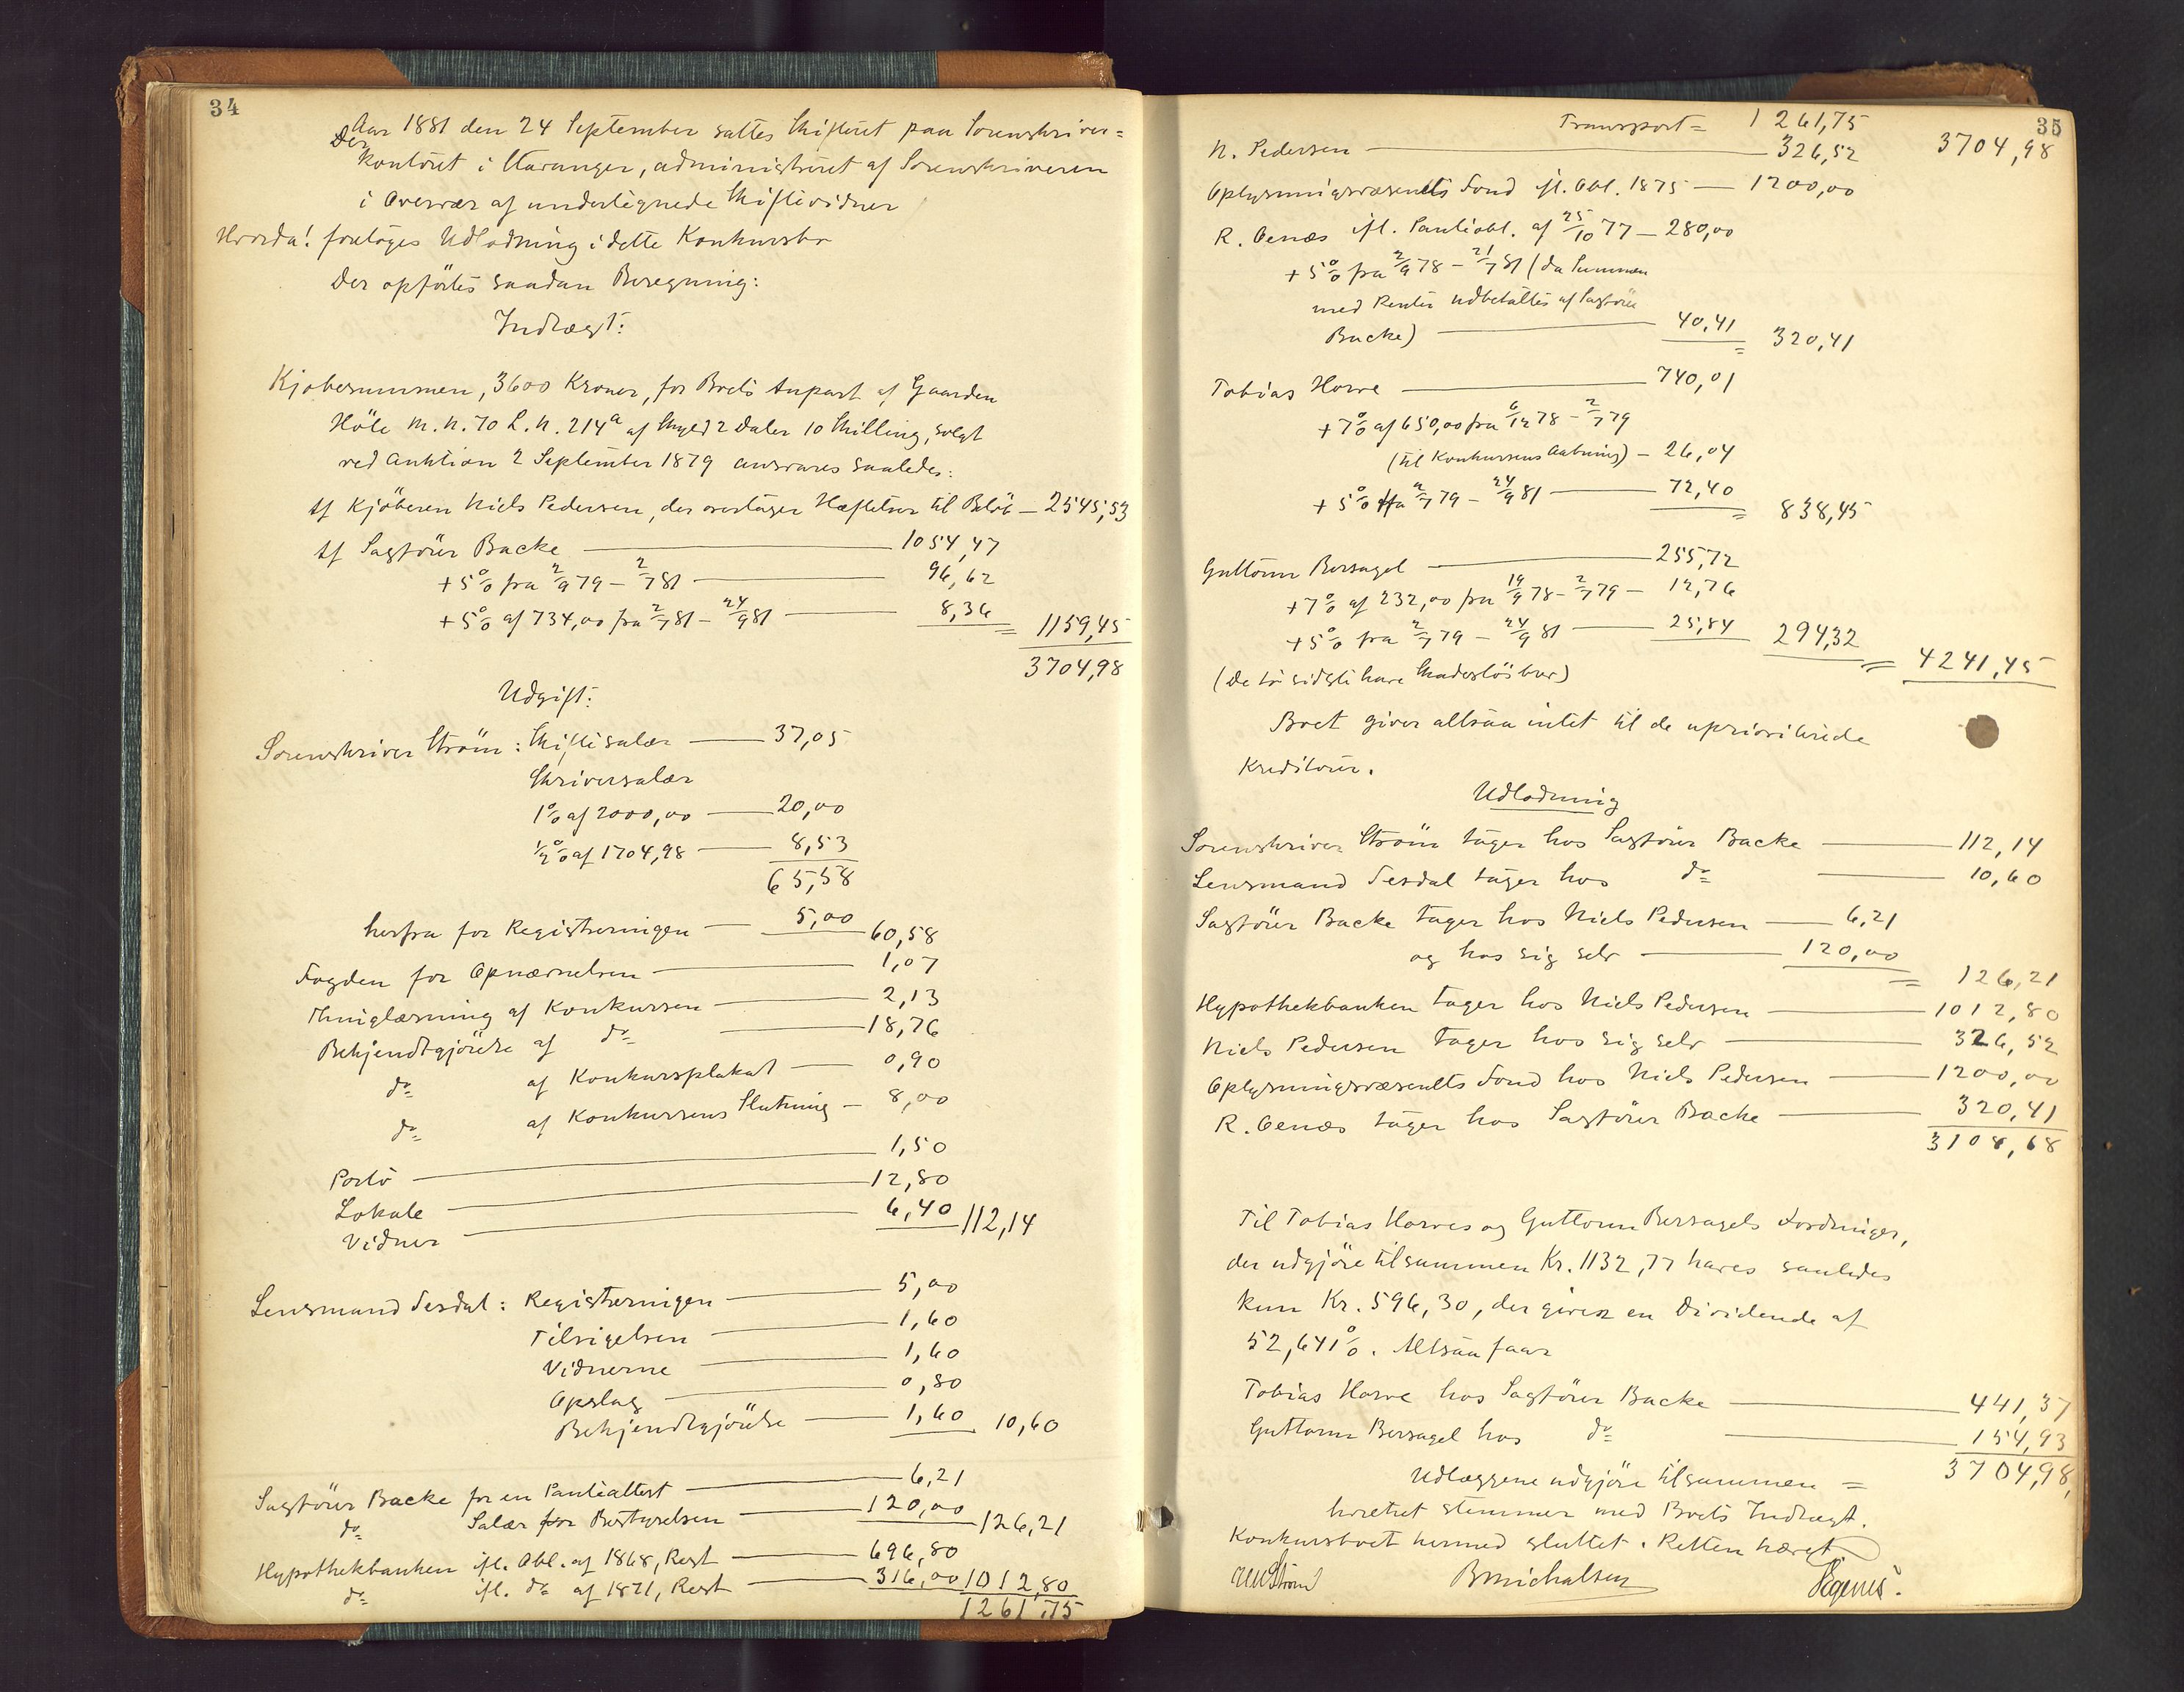 34
Aar 1881 den 24 September sattes Skifteret paa Sorenskriver=
kontoret i Stavanger, administreret af Sorenskriveren
i Overvær af undertegnede Skiftevidner
Hvorda! foretoges Udlodning i dette Konkursbo
Der opförtes saadan Beregning:
Indtægt:
Kjøbesummen, 3600 Kroner, for Boets Anpart af Gaarden
Höle M. N. 70 L. N. 214a af Skyld 2 Daler 10 Skilling, solgt
ved Auktion 2 September 1879 ansvares saaledes:
Af Kjöberen Niels Pedersen, der overtager Hæftelser til Belöb — 2545,53
Af Sagförer Backe — 1054,47
+ 5% fra 2/9 79 – 2/7 81 — 96,62
+ 5% af 734,00 fra 2/7 81 – 24/9 81 — 8,36 = 1159,45
3704,98
Udgift:
Sorenskriver Ström: Skiftesalær — 37,05
Skriversalær
1% af 2000,00 — 20,00
½% af 1704,98 — 8,53
65,58
herfra for Registreringen — 5,00 60,58
Fogden for Opnævnelsen — 1,07
Thinglæsning af Konkursen — 2,13
Bekjendtgjörelse af do — 18,76
do af Konkursplakat — 0,90
do af Konkursens Slutning — 8,00
Porto — 1,50
Lokale — 12,80
Vidner — 6,40 112,14
Lensmand Tesdal: Registreringen — 5,00
Tilsigelsen — 1,60
Vidnerne — 1,60
Opslag — 0,80
Bekjendtgjörelse — 1,60 10,60
Sagförer Backe for en Panteattest — 6,21
do Salær for Bestyrelsen — 120,00 126,21
Hypothekbanken ifl. Obl. af 1868, Rest — 696,80
do ifl. do af 1871, Rest — 316,00 1012,80
1261,75
35
Transport = 1261,75 3704,98
N. Pedersen — 326,52
Oplysningsvæsenets Fond ifl. Obl. 1875 — 1200,00
R. Oenæs ifl. Panteobl. af 25/10 77 — 280,00
+ 5% fra 2/9 78 – 21/7 81 (da Summen
med Renter udbetaltes af Sagförer
Backe) — 40,41 = 320,41
Tobias Horve — 740,01
+ 7% af 650,00 fra 6/12 78 – 2/7 79
(til Konkursens Aabning) — 26,04
+ 5% fra 2/7 79 – 24/9 81 — 72,40 = 838,45
Guttorm Bersagel — 255,72
+ 7% af 232,00 fra 19/9 78 – 2/7 79 — 12,76
+ 5% fra 2/7 79 – 24/9 81 — 25,84 294,32 = 4241,45
(De to sidste have Skadeslösbrev)
Boet giver altsaa intet til de uprioriterede
Kreditorer.
Udlodning
Sorenskriver Ström tager hos Sagförer Backe — 112,14
Lensmand Tesdal tager hos do — 10,60
Sagförer Backe tager hos Niels Pedersen — 6,21
og hos sig selv — 120,00 = 126,21
Hypothekbanken tager hos Niels Pedersen — 1012,80
Niels Pedersen tager hos sig selv — 326,52
Oplysningsvæsenets Fond hos Niels Pedersen — 1200,00
R. Oenæs tager hos Sagförer Backe — 320,41
3108,68
Til Tobias Horves og Guttorm Bersagels Fordringer,
der udgjöre tilsammen Kr. 1132,77 haves saaledes
kun Kr. 596,30, der giver en Dividende af
52,641%. Altsaa faar
Tobias Horve hos Sagförer Backe — 441,37
Guttorm Bersagel hos do — 154,93
Udlæggene udgjöre tilsammen = 3704,98,
hvilket stemmer med Boets Indtægt.
Konkursboet hermed sluttet. Retten hævet
Ström B Michalsen